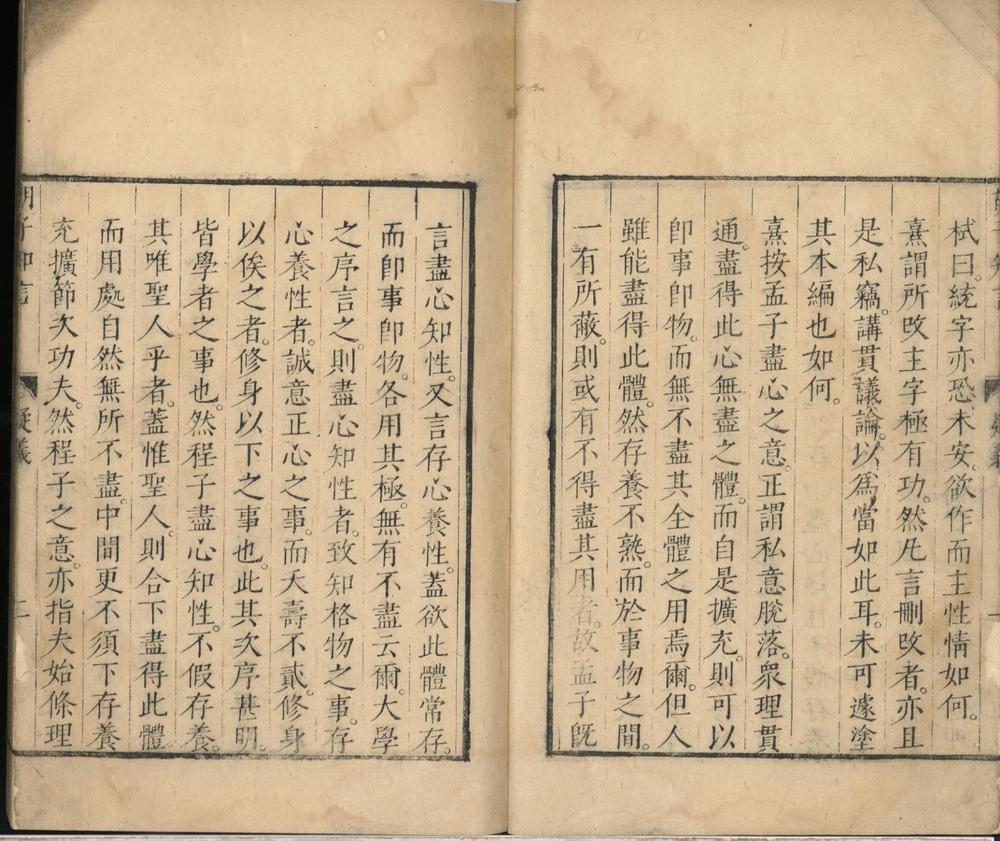 栻曰。統字亦恐未安。欲作而主性情如何。
熹謂所改主字極有功。然凡言刪改者。亦且
是私竊。講貫議論。以為當如此耳。未可遽塗
其本編也如何。
熹按孟子盡心之意。正謂私意脫落。衆理貫
通。盡得此心無盡之體。而自是擴充。則可以
卽事卽物。而無不盡其全體之用焉爾。但人
雖能盡得此體。然存養不熟。而於事物之間。
一有所蔽。則或有不得盡其用者。故孟子旣
言盡心知性。又言存心養性。蓋欲此體常存。
而卽事卽物。各用其極。無有不盡云爾。大學
之序言之。則盡心知性者。致知格物之事。存
心養性者。誠意正心之事。而夭壽不貳。修身
以俟之者。修身以下之事也。此其次序甚明。
皆學者之事也。然程子盡心知性。不假存養。
其唯聖人乎者。蓋惟聖人。則合下盡得此體
而用處自然無所不盡。中間更不須下存養
充擴節次功夫。然程子之意。亦指夫始條理
胡子知言
疑義
二